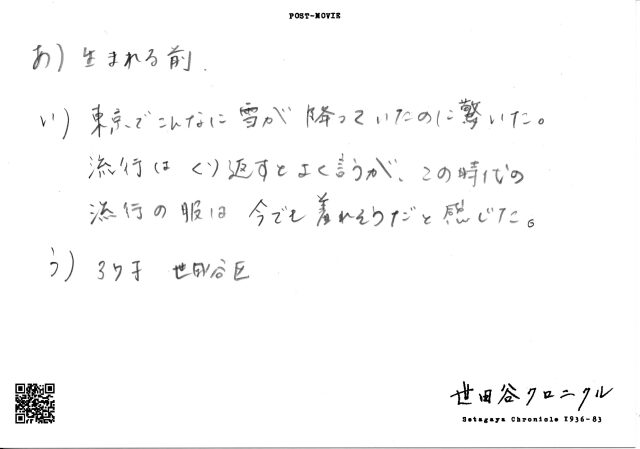 POST-MOVIE
あ) 生まれる前.
い) 東京でこんなに雪が降っていたのに驚いた。
流行はくり返すとよく言うが、この時代の
流行の服は今でも着れそうだと感じた。
う) 37才 世田谷区
世田谷クロニクル
Setagaya Chronicle 1936-83